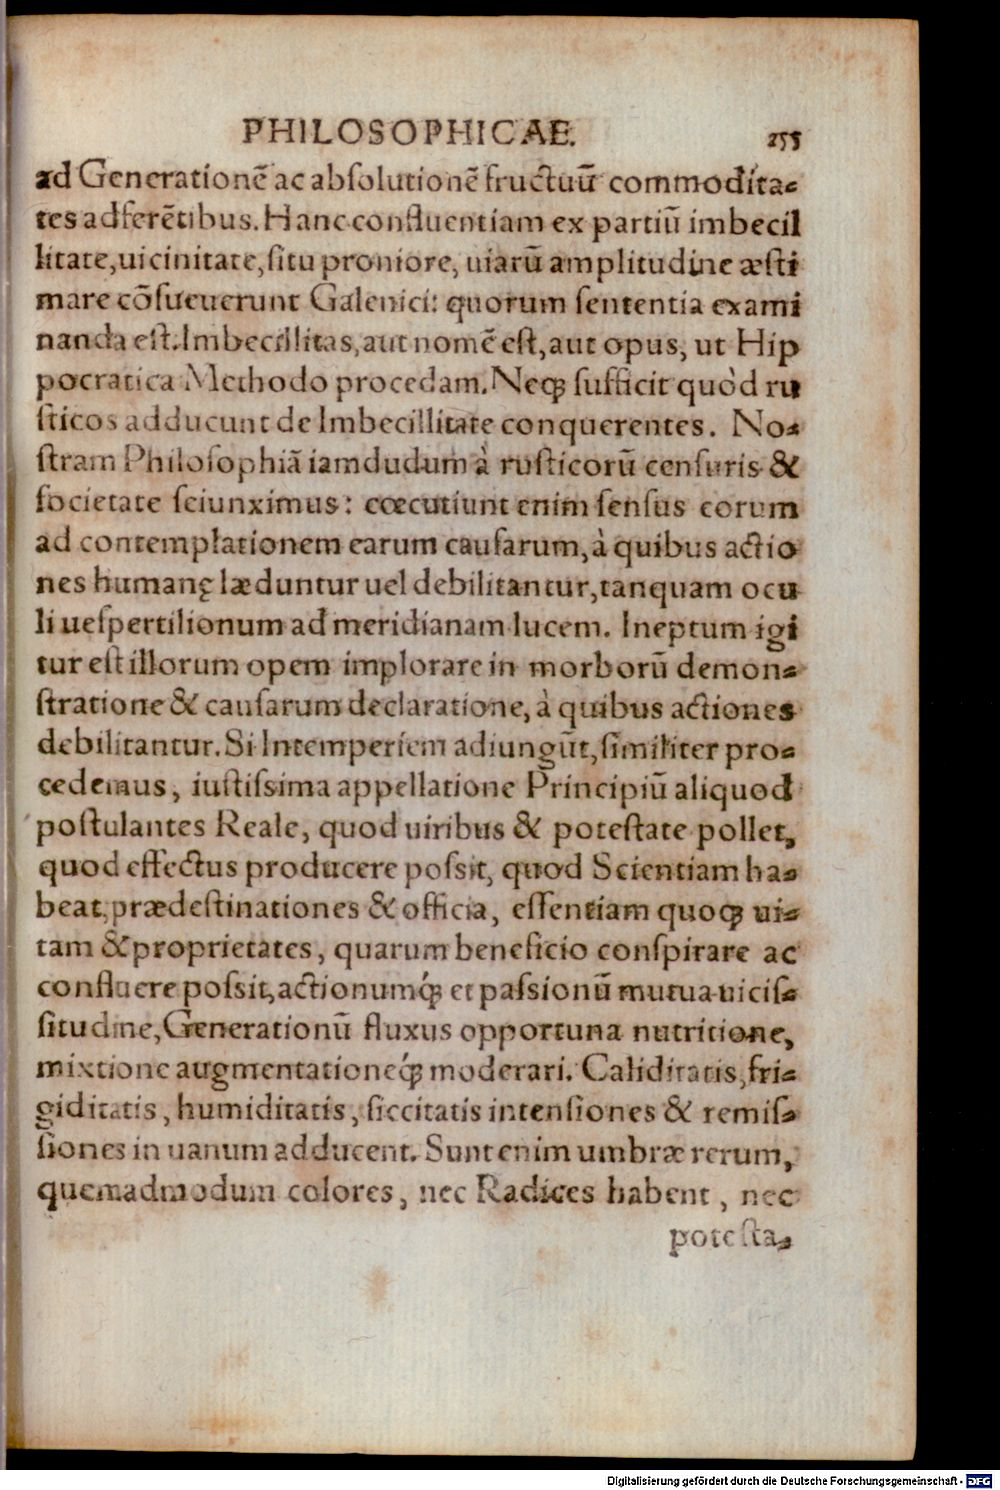 PHILOSOPHICAE. 255
ad Generationē ac abſolutionē fructuū commodita-
tes adferētibus. Hanc confluentiam ex partiū imbecil
litate, uicinitate, ſitu proniore, uiarū amplitudine æſti
mare cōſueuerunt Galenici: quorum ſententia exami
nanda eſt. Imbecillitas, aut nomē eſt, aut opus, ut Hip
pocratica Methodo procedam. Neqꝫ ſufficit quòd ru
ſticos adducunt de Imbecillitate conquerentes. No-
ſtram Philoſophiā iamdudum à ruſticorū cenſuris &
ſocietate ſeiunximus: cœcutiunt enim ſenſus eorum
ad contemplationem earum cauſarum, à quibus actio
nes humanę læduntur uel debilitantur, tanquam ocu
li ueſpertilionum ad meridianam lucem. Ineptum igi
tur eſt illorum opem implorare in morborū demon-
ſtratione & cauſarum declaratione, à quibus actiones
debilitantur. Si Intemperiem adiungūt, ſimiliter pro-
cedemus, iuſtiſsima appellatione Principiū aliquod
poſtulantes Reale, quod uiribus & poteſtate pollet,
quod effectus producere poſsit, quod Scientiam ha-
beat, prædeſtinationes & officia, eſſentiam quoqꝫ ui-
tam & proprietates, quarum beneficio conſpirare ac
confluere poſsit, actionumqꝫ́ et paſsionū mutua uiciſ-
ſitudine, Generationū fluxus opportuna nutritione,
mixtione augmentationeqꝫ́ moderari. Caliditatis, fri-
giditatis, humiditatis, ſiccitatis intenſiones & remiſ-
ſiones in uanum adducent. Sunt enim umbræ rerum,
quemadmodum colores, nec Radices habent, nec
poteſta-
Digitalisierung gefördert durch die Deutsche Forschungsgemeinschaft - DFG